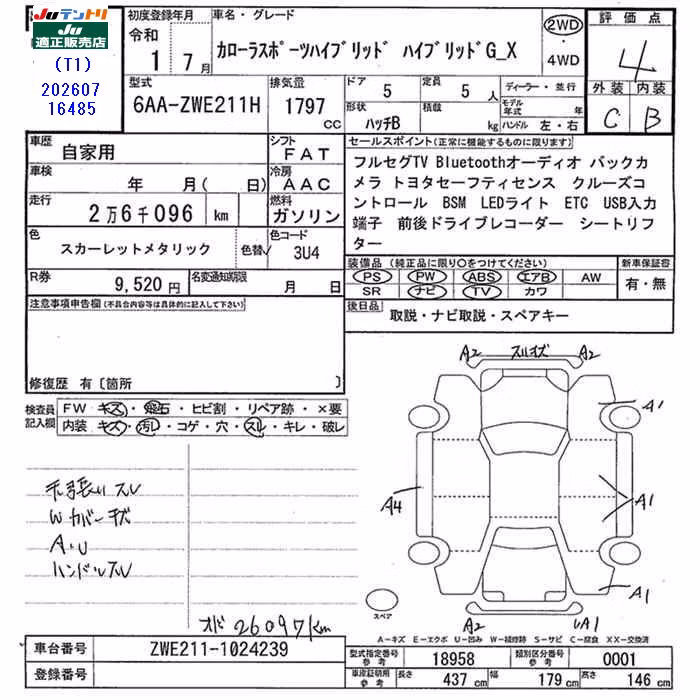 Juテントリ
Ju適正販売店
(T1)
202607
16485
初度登録年月
令和
1 7月
車名・グレード
カローラスポーツハイブリッド ハイブリッドG_X
2WD
・
4WD
評価点
4
外装 内装
C B
型式
6AA-ZWE211H
排気量
1797
cc
ドア
5
定員
5 人
形状
ハッチB
積載
kg
ディーラー・並行
モデル年式 年
ハンドル 左・右
車歴
自家用
シフト
FAT
車検
年 月( 日)
冷房
AAC
走行
2万6千096 km
燃料
ガソリン
色
スカーレットメタリック
色替
色コード
3U4
R券
9,520円
名変通知期限
月 日
セールスポイント(正常に機能するものに限ります)
フルセグTV Bluetoothオーディオ バックカ
メラ トヨタセーフティセンス クルーズコ
ントロール BSM LEDライト ETC USB入力
端子 前後ドライブレコーダー シートリフ
ター
装備品(純正品に限り○をつけてください)
PS PW ABS エアB AW
SR ナビ TV カワ
新車保証書
有・無
後日品
取説・ナビ取説・スペアキー
注意事項申告欄(不具合内容等は具体的に記入して下さい)
修復歴 有〔箇所 〕
検査員
記入欄
FW キズ・飛石・ヒビ割・リペア跡・×要
内装 キズ・汚レ・コゲ・穴・スレ・キレ・破レ
天張りスレ
Wカバーキズ
A・U
ハンドルスレ
オド 26097km
A2 スリキズ A2
A1
A4
A1
A1
A2 UA1
スペア
A-キズ E-エクボ U-凹み W-補修跡 S-サビ C-腐食 XX-交換済
車台番号 ZWE211-1024239
登録番号
型式指定番号
参考
18958
類別区分番号
参考
0001
車庫証明用
参考
長さ 437 cm 幅 179 cm 高さ 146 cm